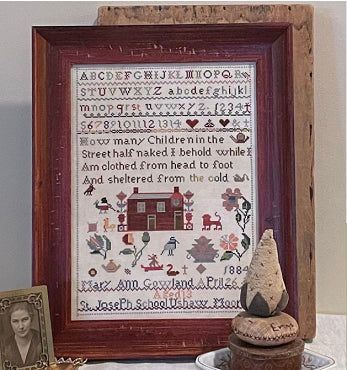 ABCDEFGHIJKLMNOPQR
STUVWXYZ abcdefghijkl
mnopqrst uvwxyz. 1234
567891011121314
How many Children in the
Street half naked I behold while I
Am clothed from head to foot
And sheltered from the cold
1884
Mary Ann Gowland April 26
Aged 13
St. Joseph School Ushaw Moor